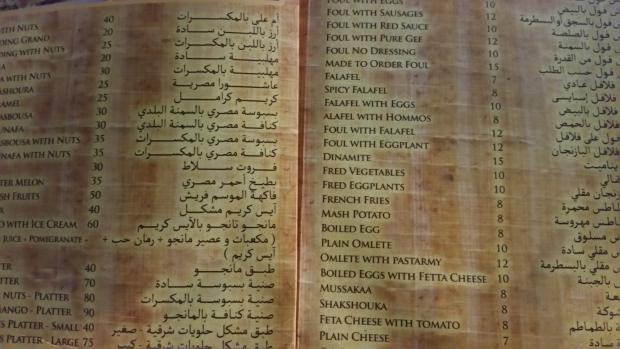 NUTS 40 أم على بالمكسرات
DING GRAND 20 أرز باللبن سادة
DING WITH NUTS 30 أرز باللبن بالمكسرات
20 مهلبية سادة
WITH NUTS 30 مهلبية بالمكسرات
ASHOURA 25 عاشورا مصرية
AMEL 25 كريم كرامل
ASBOUSA 30 بسبوسة مصري بالسمنة البلدي
UNAFA 30 كنافة مصري بالسمنة البلدي
ASBOUSA WITH NUTS 35 بسبوسة مصري بالمكسرات
UNAFA WITH NUTS 35 كنافة مصري بالمكسرات
30 فروت سلاط
TER MELON 35 بطيخ أحمر مصري
SH FRUITS 50 فاكهة الموسم فريش
X 40 آيس كريم مشكل
O WITH ICE CREAM 60 مانجو تانجو بالآيس كريم
JUICE + POMIGRANATE + ( مكعبات و عصير مانجو + رمان حب +
آيس كريم )
TER 40 طبق مانجو
ATTER 70 صنية بسبوسة سادة
NUTS - PLATTER 80 صنية بسبوسة بالمكسرات
MANGO - PLATTER 90 صنية كنافة بالمانجو
S PLATTER - SMALL 40 طبق مشكل حلويات شرقية - صغير
S PLATTER - LARGE 75 طبق مشكل حلويات شرقية - كبير
FOUL WITH EGGS 10 فول بالبيض
FOUL WITH SAUSAGES 12 فول بالسجق أو البسطرمة
FOUL WITH RED SAUCE 10 فول بالصلصة
FOUL WITH PURE GEF 12 فول بالسمنة
FOUL NO DRESSING 10 فول من القدرة
MADE TO ORDER FOUL 15 فول حسب الطلب
FALAFEL 7 فلافل عادي
SPICY FALAFEL 8 فلافل إسبايسى
FALAFEL WITH EGGS 10 فلافل بالبيض
ALAFEL WITH HOMMOS 8 فلافل بالحمص
FOUL WITH FALAFEL 12 فول على فلافل
FOUL WITH EGGPLANT 12 البازنجان
DINAMITE 15 ديناميت
FRED VEGETABLES 10
FRED EGGPLANTS 10 بازنجان مقلي
FRENCH FRIES 8 بطاطس محمرة
MASH POTATO 8 بطاطس مهروسة
BOILED EGG 8 بيض مسلوق
PLAIN OMLETE 8 مقلي سادة
OMLETE WITH PASTARMY 12 مقلي بالبسطرمة
BOILED EGGS WITH FETTA CHEESE 10 بالجبنة
MUSSAKAA 8
SHAKSHOUKA 8
FETA CHEESE WITH TOMATO 8 بالطماطم
PLAIN CHEESE 7 سادة